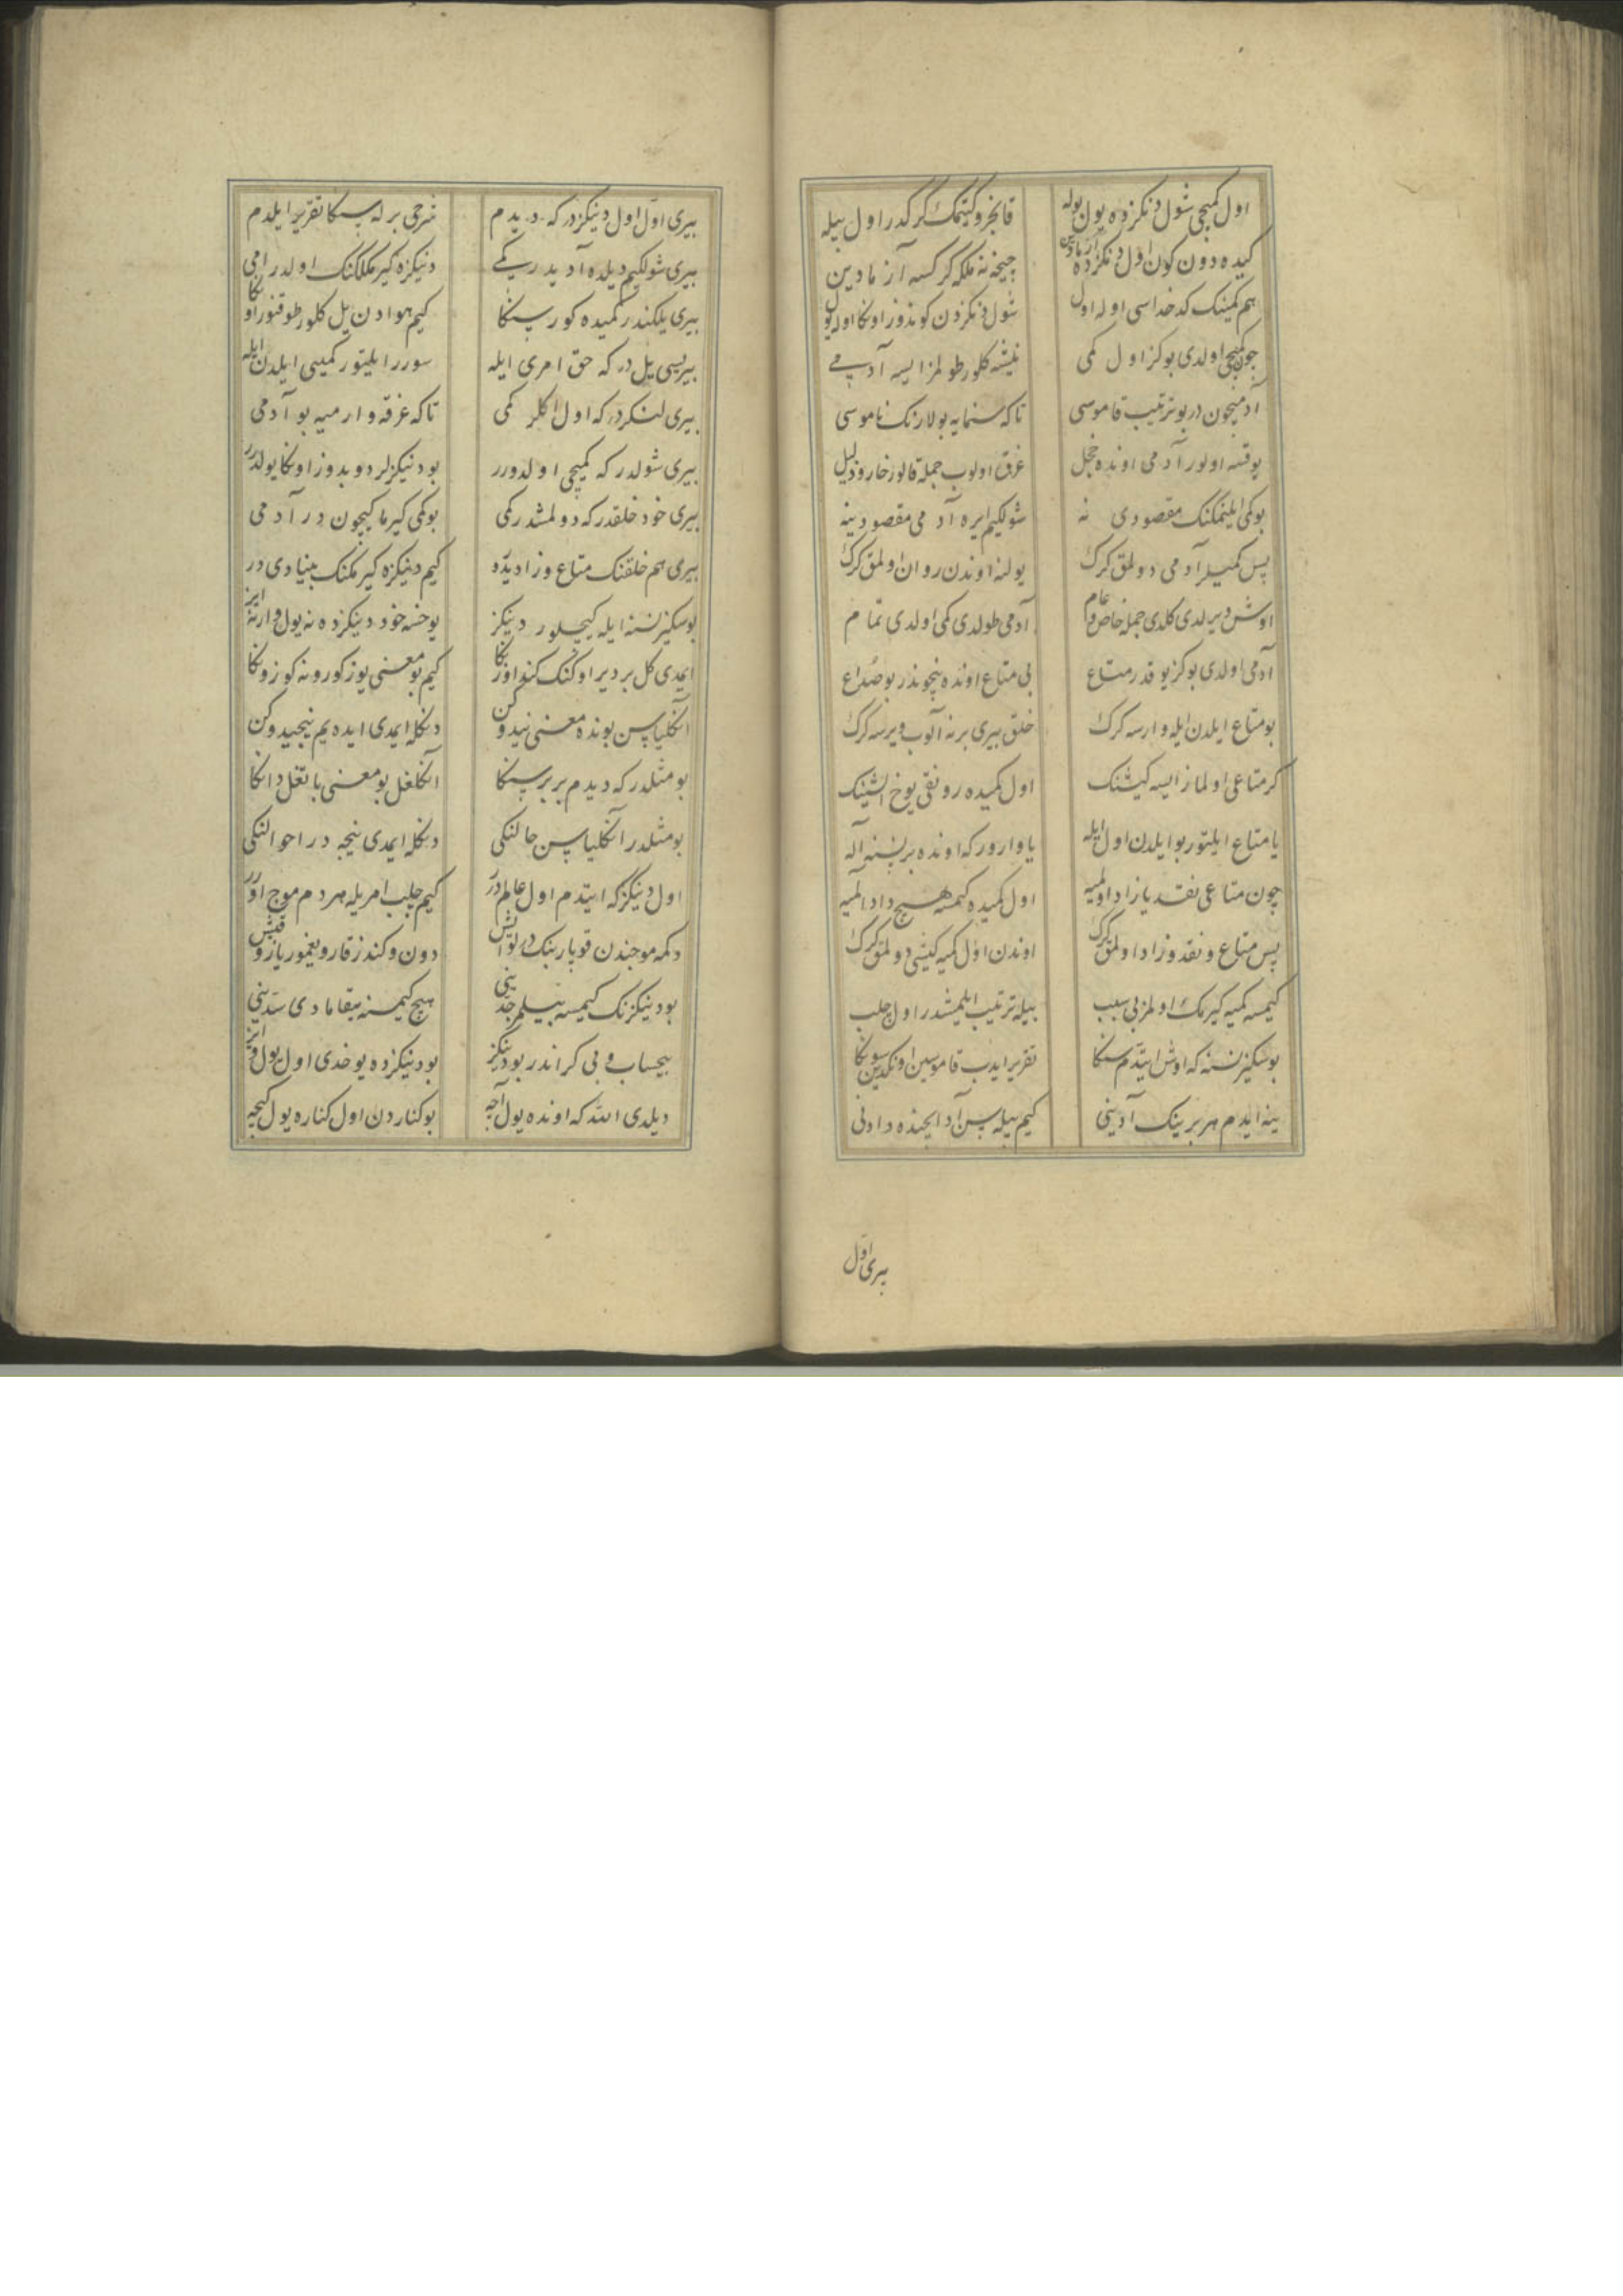 اول کمیچی شول دنکزده یول بوله قانجرو کیتمک کرکدر اول بیله
کیده دون کون اول دنکزده چیخنه ملکه کر کسه آزمادین
هم کمینک کدخداسی اوله اول شول دنکزدن کوندوز اونکا اوله یول
چون کمیچی اولدی بوکز اول کمی نیشه کلور طولمز ایسه آدمی
آدمیچون در بو ترتیب قاموسی تاکه سنمایه بولارنک ناموسی
یوقسه اولور آدمی اونده خجل غرق اولوب جمله قالور خار و ذلیل
بو کمی ایلنمکنک مقصودی نه شولکیم ایره آدمی مقصودینه
پس کمیلر آدمی دولمق کرک یولنه اوندن روان اولمق کرک
اوش دیرلدی کلدی جمله خاص و عام آدمی طولدی کمی اولدی تمام
آدمی اولدی بوکز یوقدر متاع بی متاع اونده نیچوندر بو صداع
بو متاع ایلدن ایله وارسه کرک خلق بیری برنه آلوب ویرسه کرک
کر متاعی اولماز ایسه کیشنک اول کمیده رونقی یوخ ایشینک
یا متاع ایلتور بو ایلدن اول ایله یا وارور که اونده بر نسنه آله
چون متاعی نقد یا زاد اولمیه اول کمیده کیمسه هیچ داد المیه
پس متاع و نقد و زاد اولمق کرک اوندن اول کمیه کیشی دولمق کرک
کیمسه کمیه کیرمک اولمز بی سبب بیله ترتیب ایلمیشدر اول چلب
بو سکیز نسنه که اوش ایتدم سنکا تقریر ایدب قاموسین اونکدین سونکا
ینه ایدم هر برینک آدینی کیم بیله سن آد ایچنده دادنی
بیری اول
بیری اول اول دنیکزدر که دیدم شرحی برله سنکا تقریر ایلدم
بیری شولکیم دیلده آدیدر کمی دنیکزه کیرمکلکنک اولدر امی
بیری یلکندر کمیده کور سنکا کیم هوادن یل کلور طوقنور اونکا
بیریسی یل در که حق امری ایله سورر ایلیتور کمییی ایلدن ایله
بیری لنکردر که اول اکلر کمی تاکه غرقه وارمیه بو آدمی
بیری شولدر که کمیچی اولدورر بو دنیکزلردو بدوز اونکا یولدرر
بیری خود خلقدر که دولمشدر کمی بو کمی کیرماکیچون در آدمی
بیری هم خلقنک متاع و زادیدر کیم دنیکزه کیرمکنک بنیادی در
بو سکیز نسنه ایله کیچلور دینکز یوخسه خود دینکزده نه یول وار نه ایز
ایمدی کل بر دیر اوکنک کندوزنکا کیم بو معنی یوز کورونه کوزونکا
انکلیاسن بونده معنی نیدوکن دنکله ایمدی ایده یم نیجیدوکن
بو مثلدر که دیدم بربر سنکا انکلاغل بو معنی باتغل دانکا
بو مثلدر انکلیاسن حالنکی دنکله ایمدی نیجه در احوالنکی
اول دنیکز که ایتدم اول عالم در کیم چلب امریله هر دم موج اورر
دکمه موجندن قوپار بنک در تواش دون و کندز قار و یغمور یاز و قیش
بو دنیکزنک کیمسه بیلمز حدینی هیچ کیمسنه ییقامادی سدینی
بیحساب و بی کراندر بو دنیکز بو دنیکزده یوخدی اول یول و ایز
دیلدی الله که اونده یول آچه بو کناردن اول کناره یول کیچه